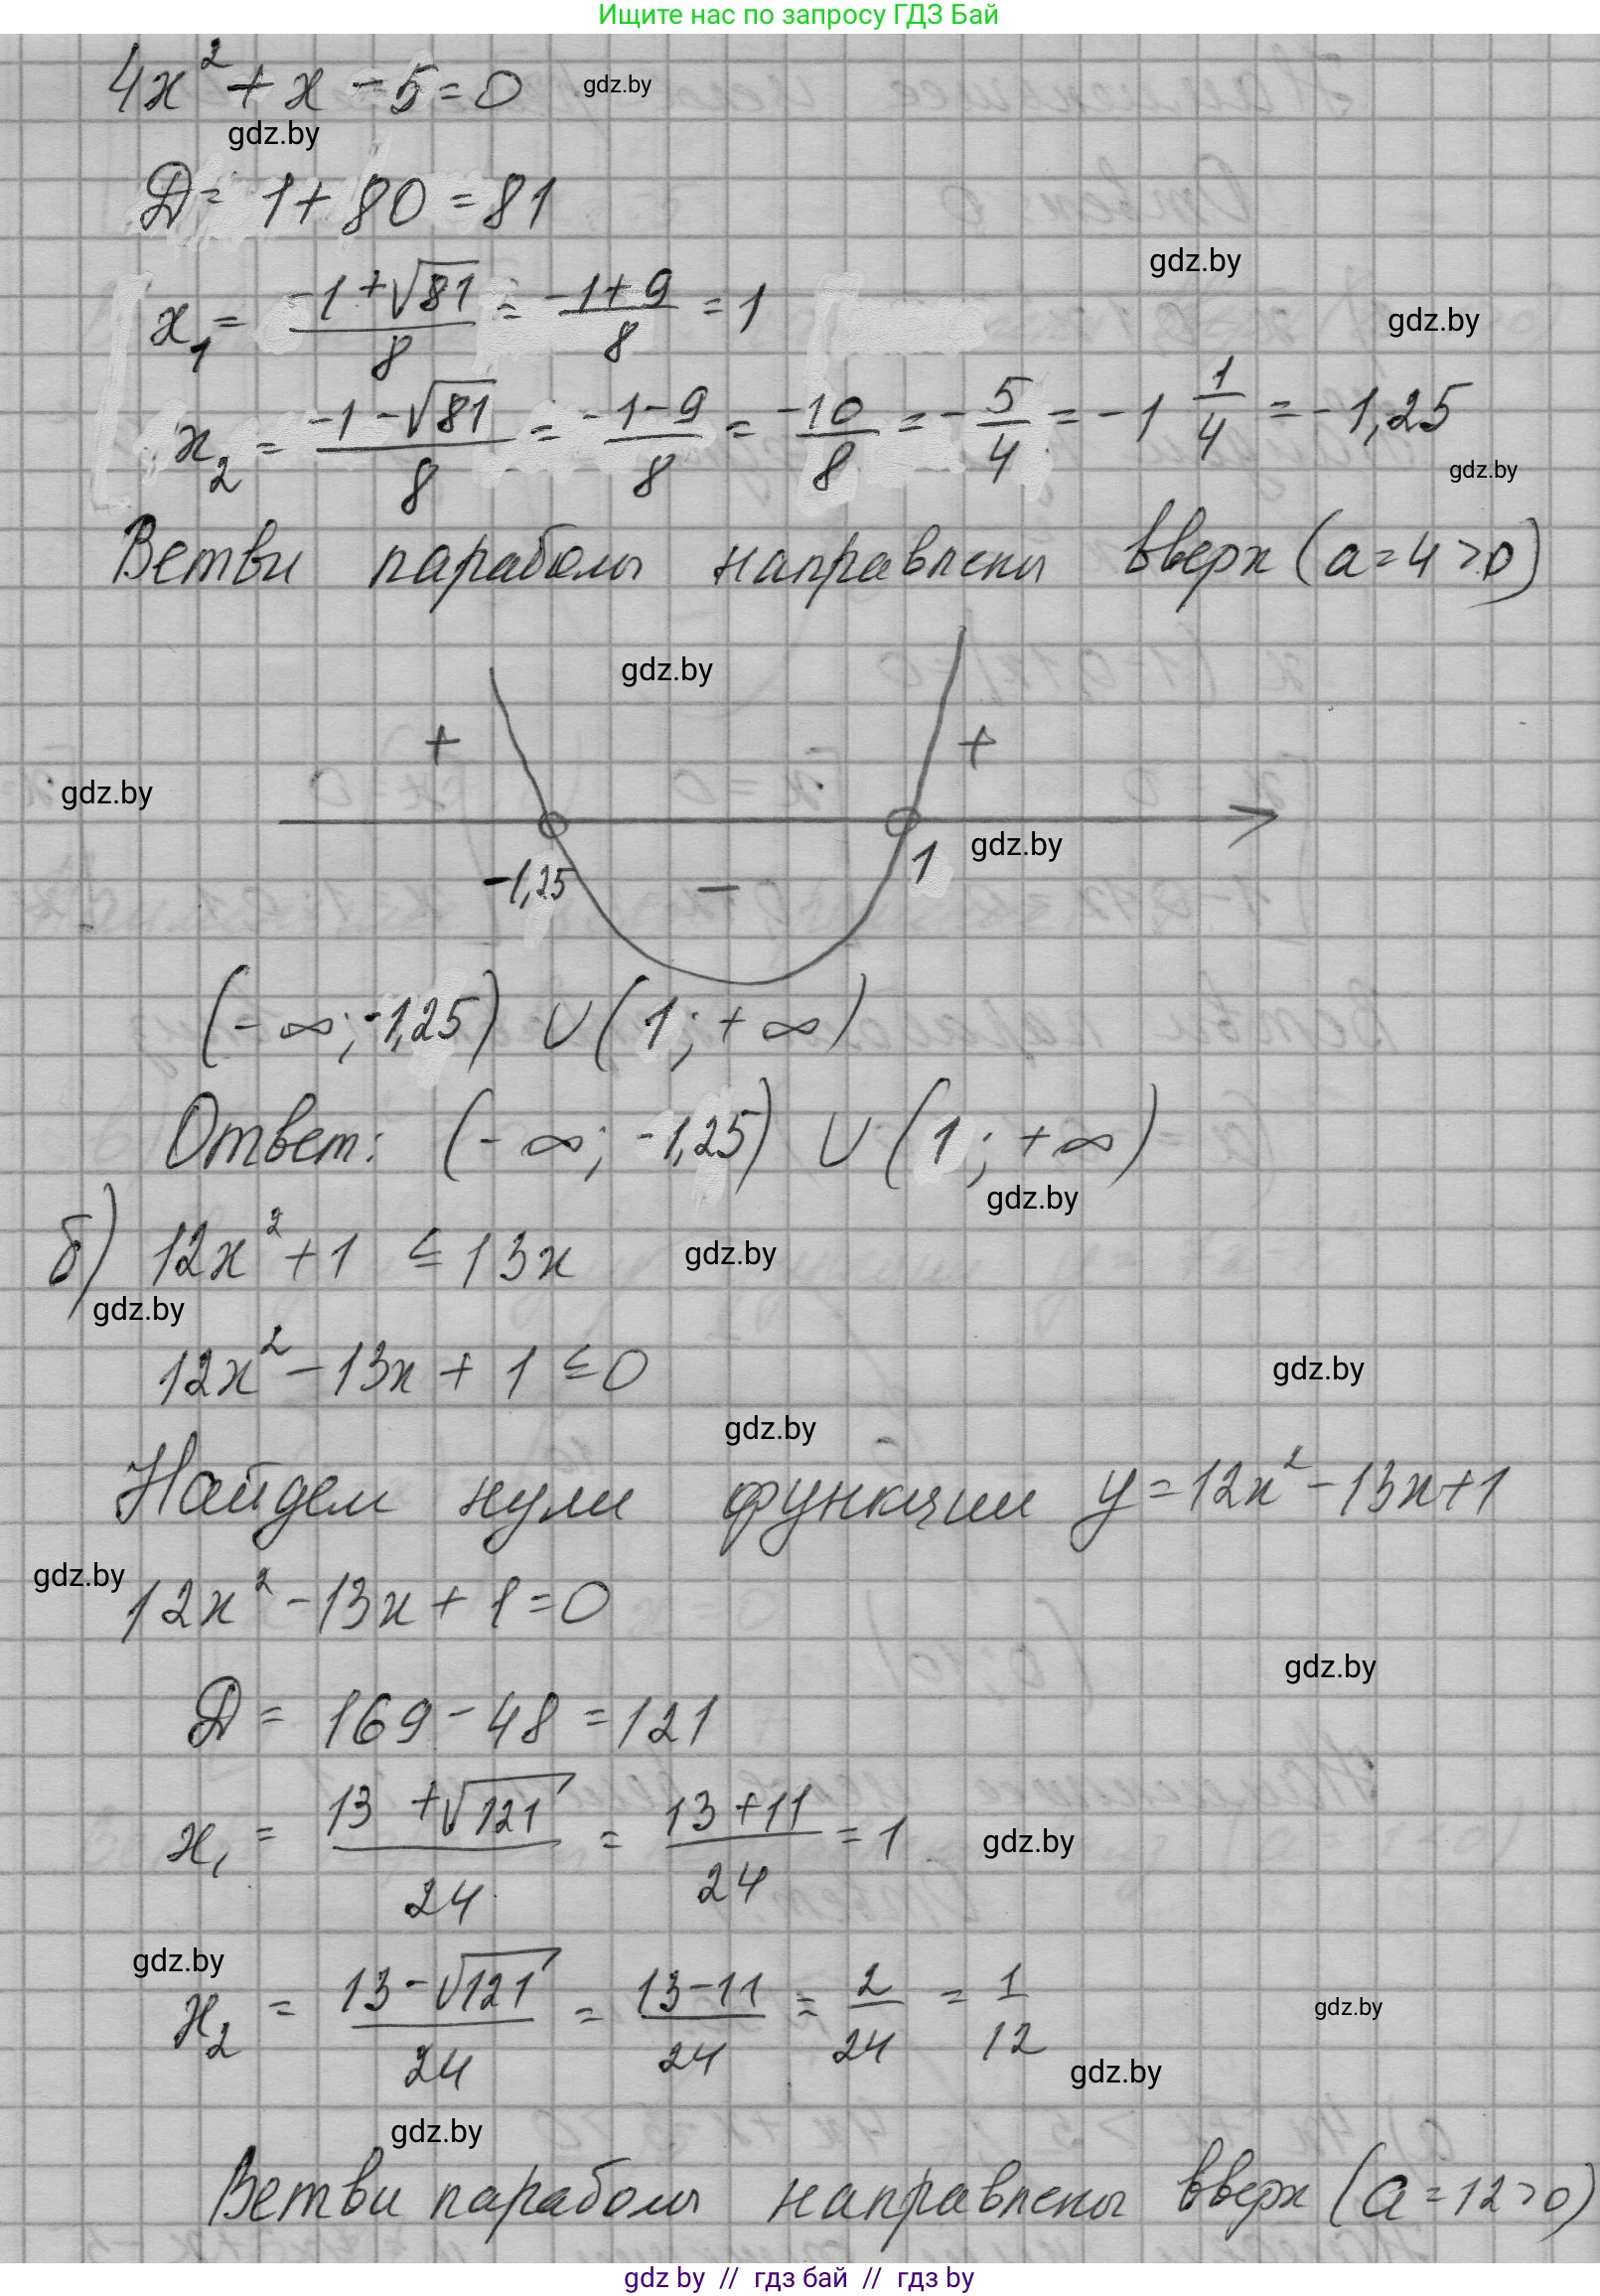 Ищите нас по запросу ГДЗ Бай
4x² + x - 5 = 0 gdz.by
gdz.by
Д = 1 + 80 = 81
gdz.by
x₁ = (-1+√81)/8 = (-1+9)/8 = 1 gdz.by
x₂ = (-1-√81)/8 = (-1-9)/8 = -10/8 = -5/4 = -1 1/4 = -1,25
gdz.by
Ветви параболы направлены вверх (a=4>0)
gdz.by
+ +
gdz.by
-1,25 - 1 gdz.by
(-∞; -1,25) ∪ (1; +∞)
Ответ: (-∞; -1,25) ∪ (1; +∞)
gdz.by
б) 12x² + 1 ≤ 13x gdz.by
gdz.by
12x² - 13x + 1 ≤ 0 gdz.by
gdz.by
Найдем нули функции y = 12x² - 13x + 1
gdz.by
12x² - 13x + 1 = 0
gdz.by
Д = 169 - 48 = 121
x₁ = (13+√121)/24 = (13+11)/24 = 1 gdz.by
gdz.by
x₂ = (13-√121)/24 = (13-11)/24 = 2/24 = 1/12 gdz.by
gdz.by
gdz.by
Ветви параболы направлены вверх (a=12>0)
gdz by // гдз бай // гдз by